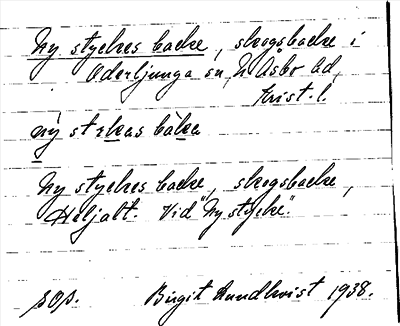 Ny styckes backe, skogsbacke i
Oderljunga sn, N. Åsbo hd,
Krist. l.
Ny styckes backe, skogsbacke,
Vid "Ny stycke".
sop. Birgit Rundkvist 1938.